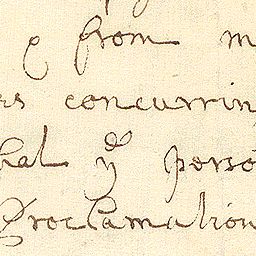 from m
rs concurrin
hat yᵉ perso
Proclamation